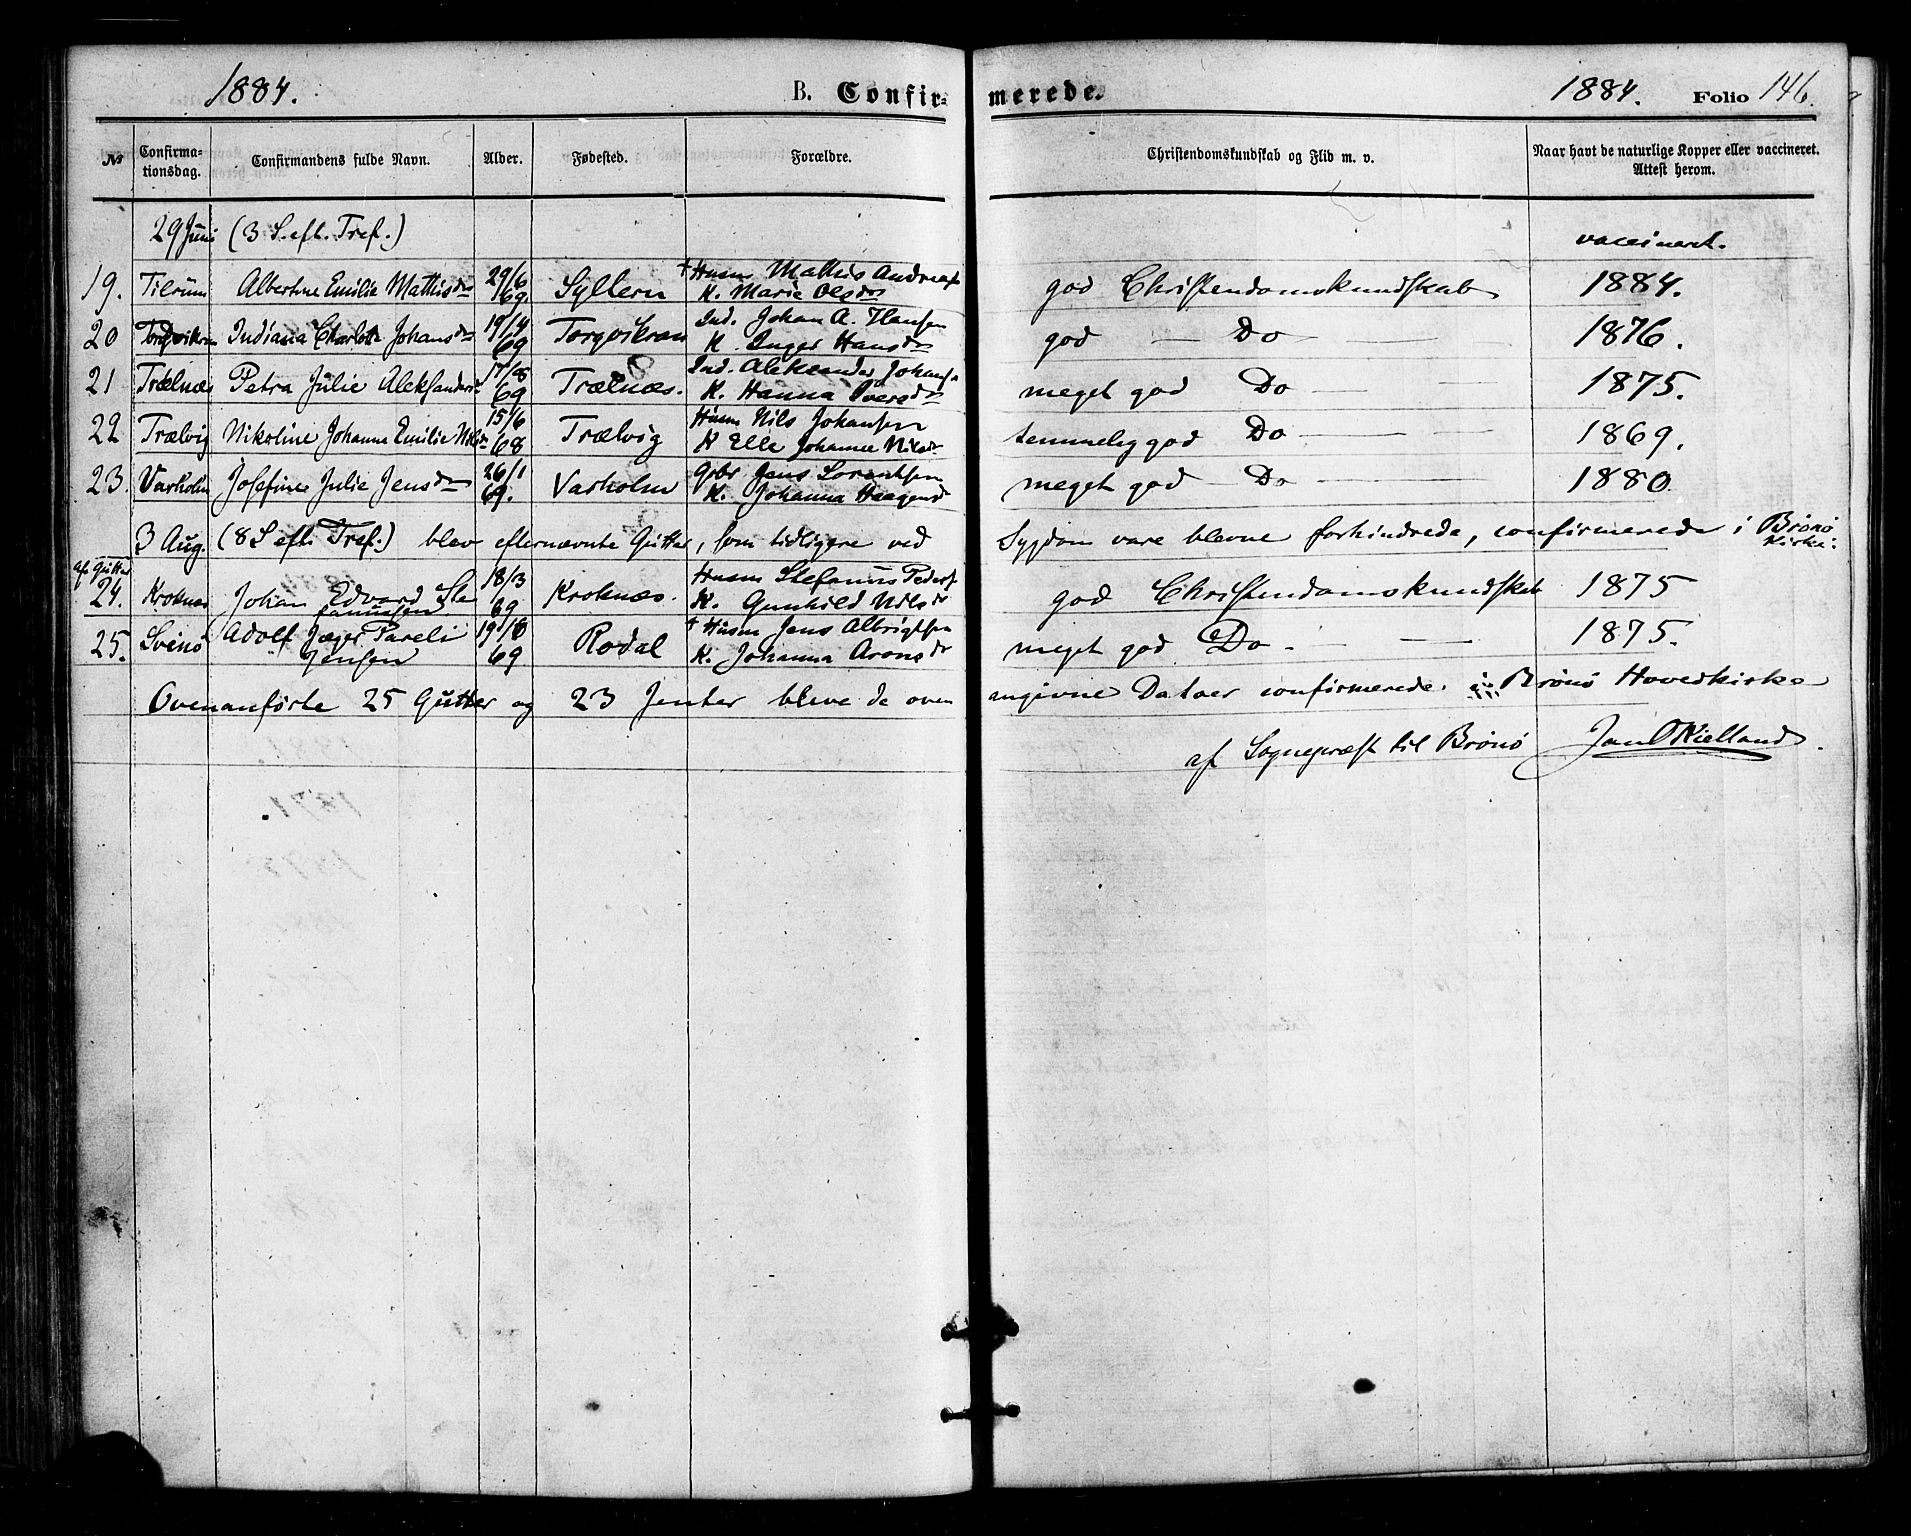 1884. B. Confirmerede. 1884. Folio 146.
№ Confirmationsdag. Confirmandens fulde Navn. Alder. Fødested. Forældre. Christendomskundskab og Flid m. v. Naar havt de naturlige Kopper eller vaccineret. Attest herom.
29 Juni (3 S. eft. Tref.) vaccineret.
19. Tilrüm Albertine Emilie Mathisdr 29/6 69. Syltern † Husm Mathis Andreas K. Marie Olsdr god Christendomskundskab 1884.
20 Torgvikran Indiana Charlotte Johansdr 19/4 69 Torgvikran Ind. Johan A. Hansen K. Inger Hansdr god — Do — 1876.
21 Trælnæs Petra Julie Aleksandersdr 17/8 69 Trælnæs. Ind. Aleksander Johansn K. Hanna Iversdr meget god Do — 1875.
22 Trælvig Nikoline Johanna Emilie Nilsdr 15/6 68 Trælvig Husm Nils Johansen K Elle Johanna Nilsdr temmelig god Do — 1869.
23. Varholm Josefine Julie Jensdr 26/1 69. Varholm Gbr Jens Lorentsen K. Johanna Haagensdr meget god Do — 1880.
3 Aug. (8 S eft. Tref.) blev efternævnte Gütter, som tidligere ved Sygdom vare blevne forhindrede, confirmerede i Brønø Kirke:
af Gütter
24. Kroknæs Johan Edvard Stefanussen 18/3 69 Kroknæs. Husm Stefanus Peders K. Gunhild Nilsdr god Christendomskundskab 1875
25. Svinø Adolf Jæger Pareli Jensen 19/8 69 Rodal † Husm Jens Albrigtsen K. Johanna Aronsdr meget god Do. — 1875.
Ovenanførte 25 Gütter og 23 Jenter bleve de oven angivne Datoer confirmerede i Brønø Hovedkirke
af Sognepræst til Brønø Jan O Kielland.